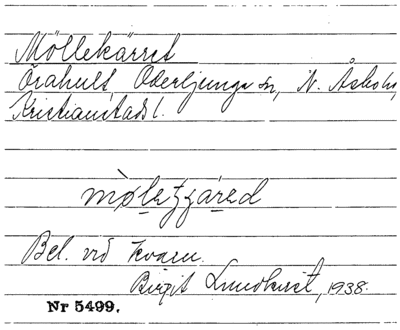 Möllekärret
Örahult Oderljunga sn, N. Åsbo hd,
Kristianstads l.
Bel. vid kvarn.
Birgit Lundkvist, 1938.
Nr 5499.